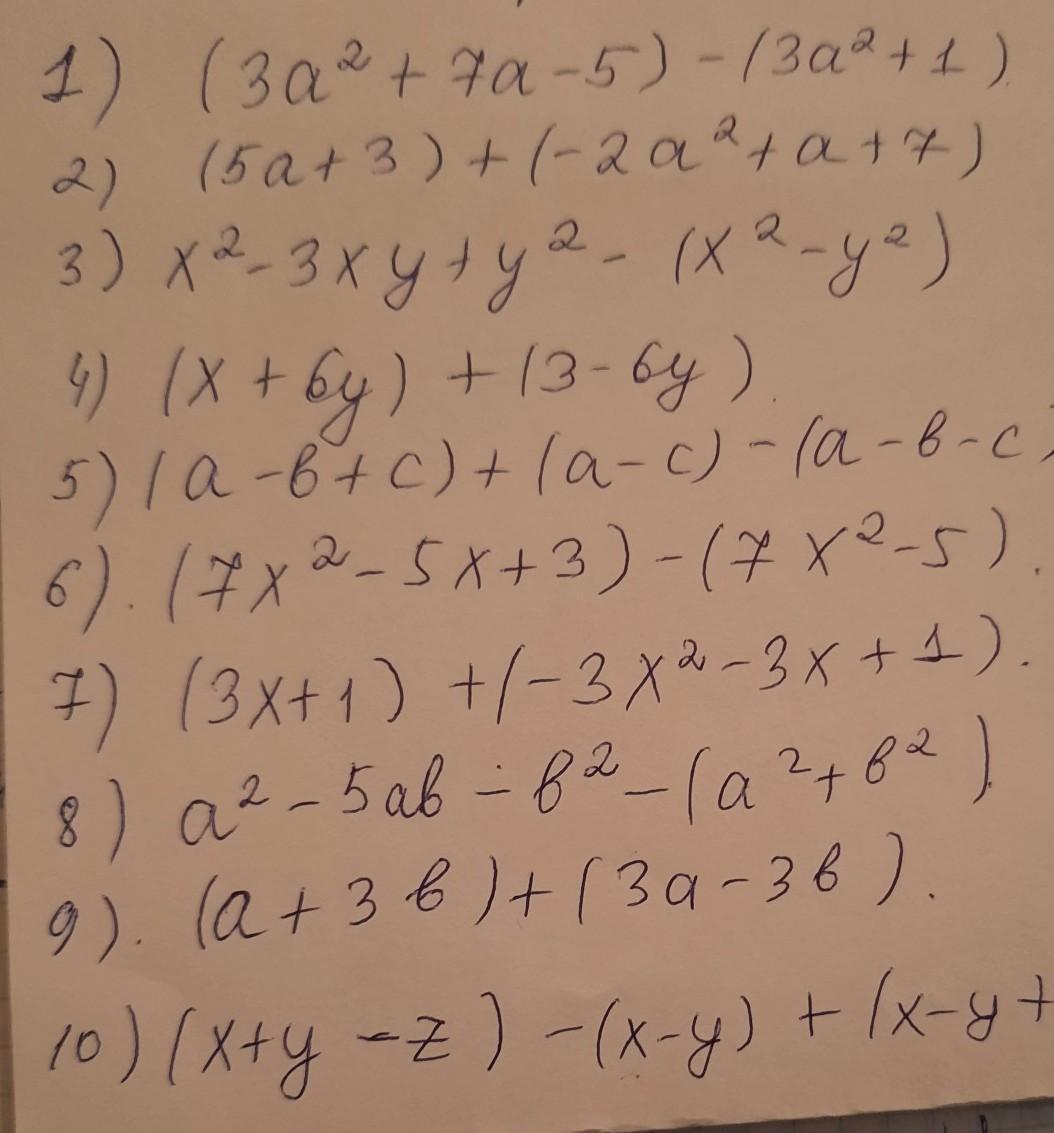 1) (3a² + 7a - 5) - (3a² + 1).
2) (5a + 3) + (-2a² + a + 7)
3) x² - 3xy + y² - (x² - y²)
4) (x + 6y) + (3 - 6y).
5) (a - в + c) + (a - c) - (a - в - c)
6). (7x² - 5x + 3) - (7x² - 5).
7) (3x + 1) + (-3x² - 3x + 1).
8) a² - 5aв - в² - (a² + в²).
9). (a + 3в) + (3a - 3в).
10) (x + y - z) - (x - y) + (x - y +